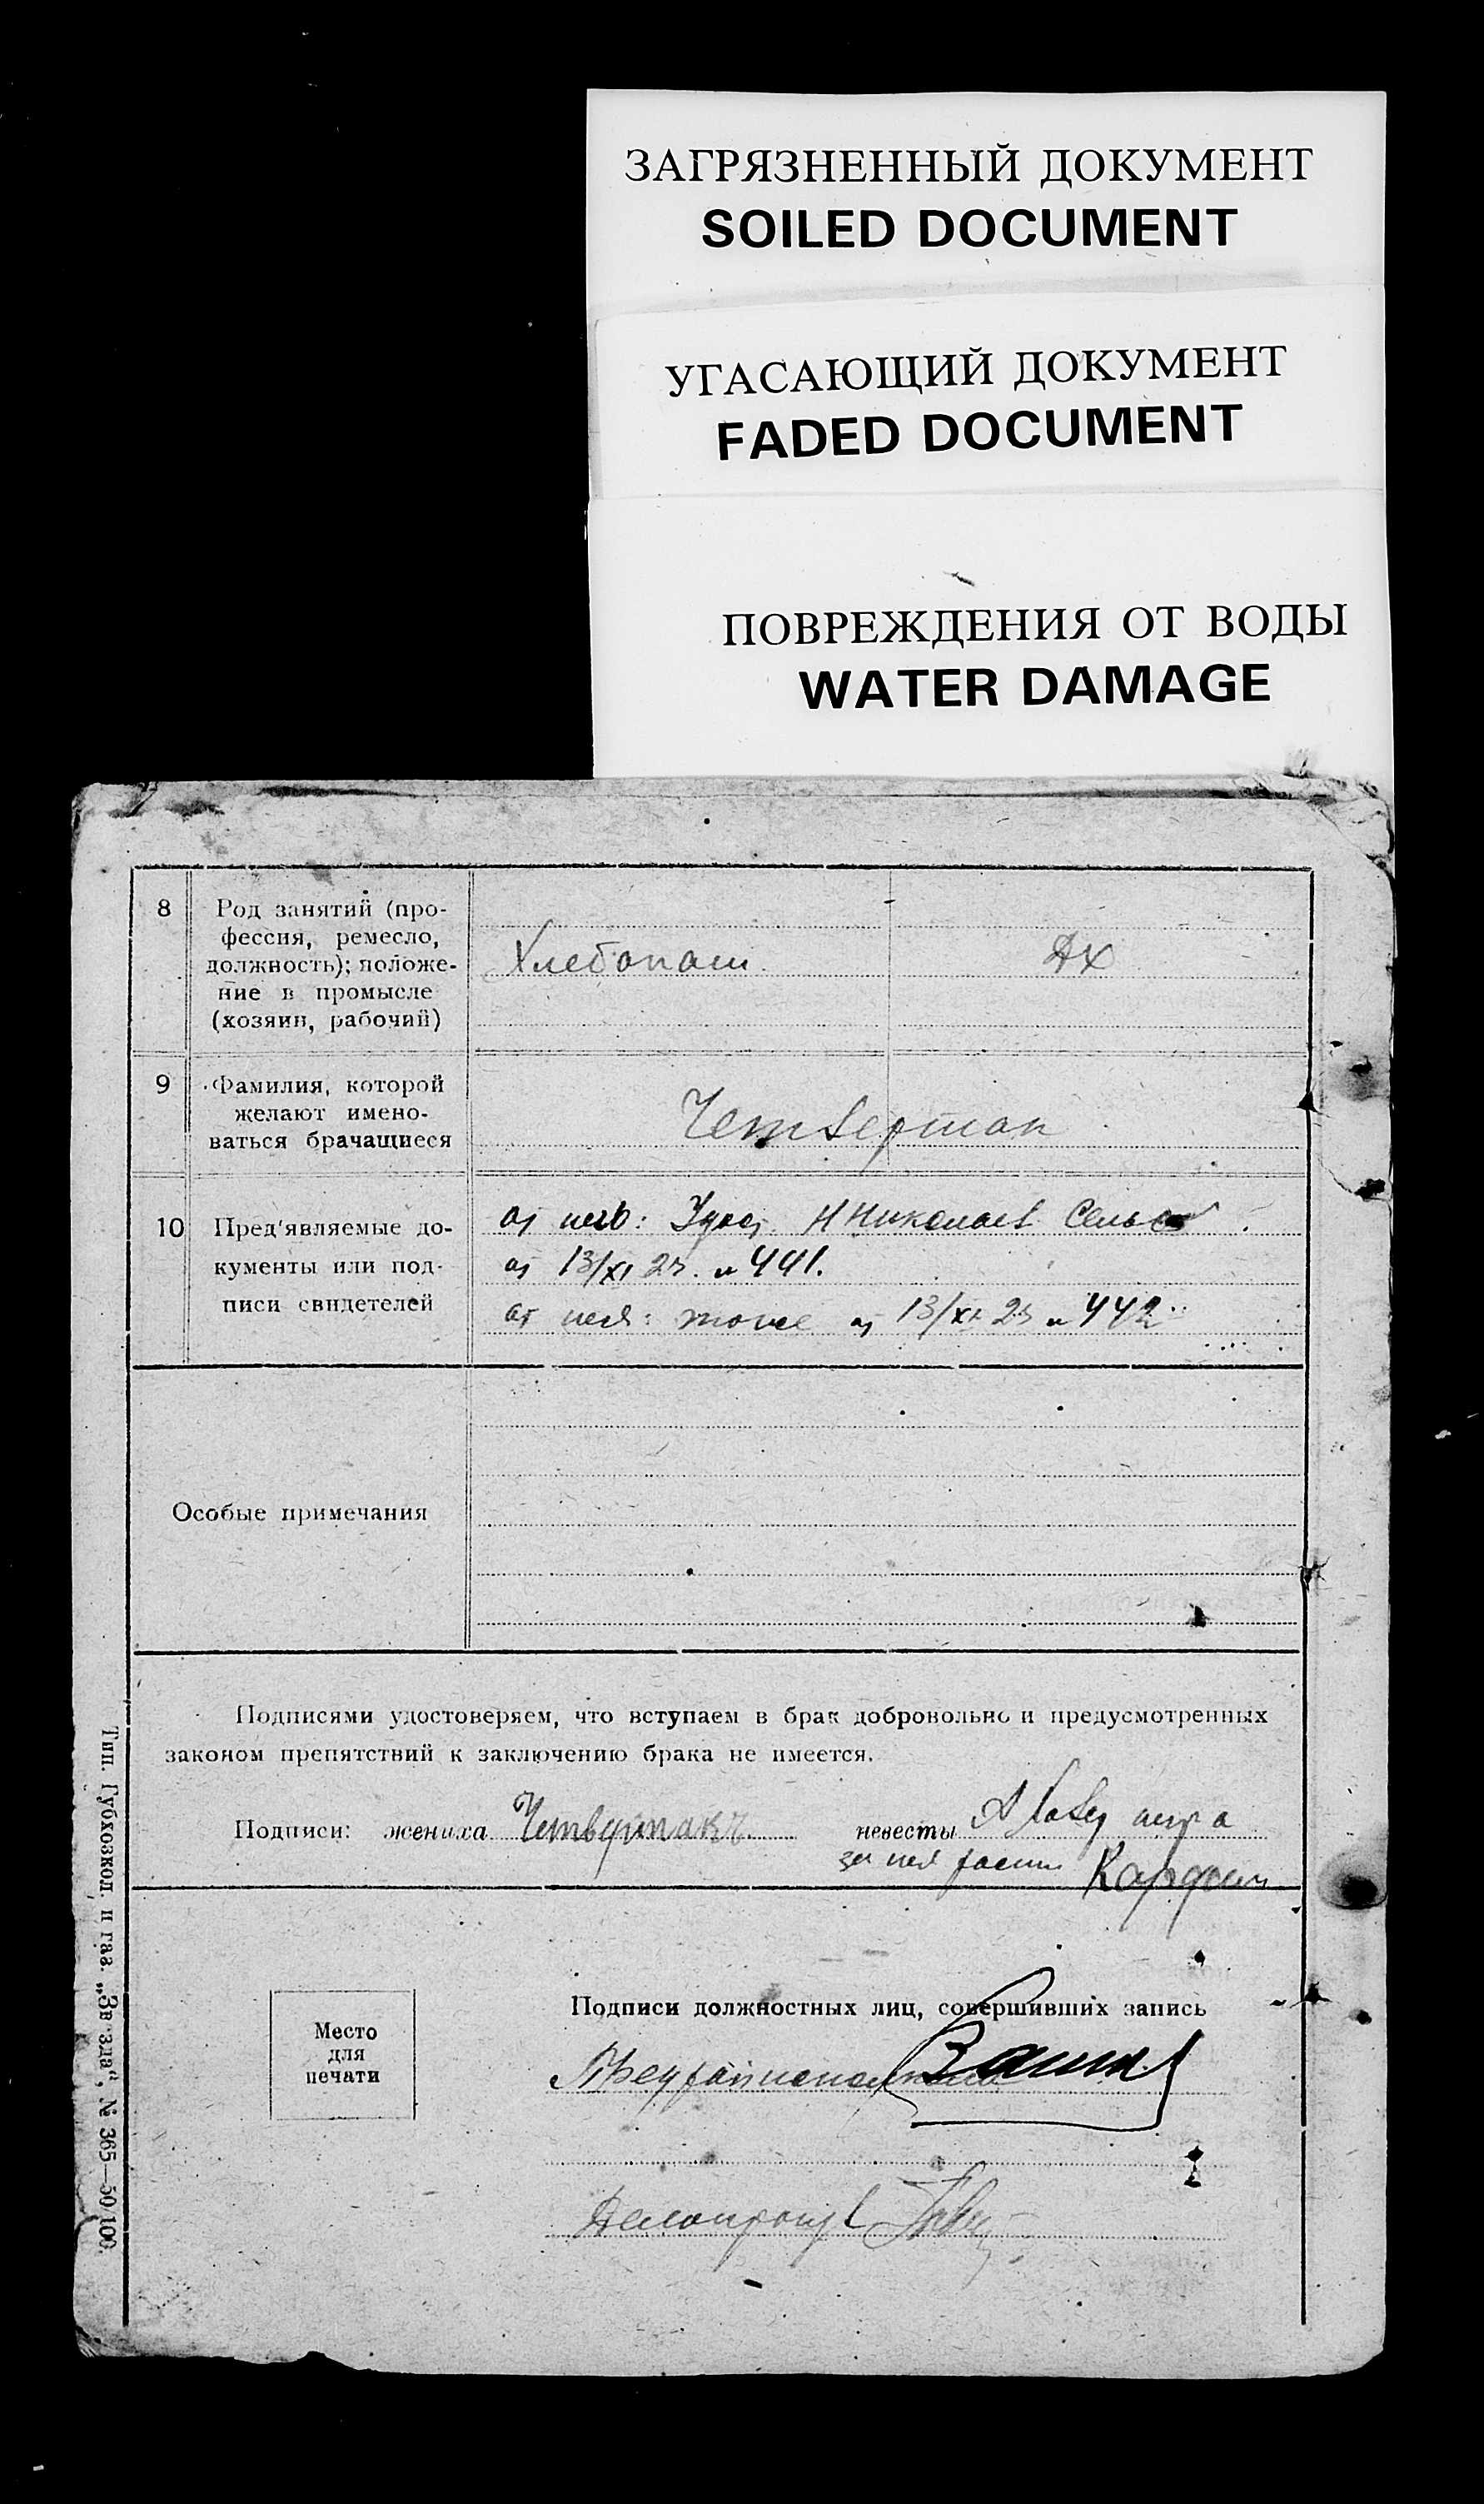 ЗАГРЯЗНЕННЫЙ ДОКУМЕНТ
SOILED DOCUMENT
УГАСАЮЩИЙ ДОКУМЕНТ
FADED DOCUMENT
ПОВРЕЖДЕНИЯ ОТ ВОДЫ
WATER DAMAGE
8 Род занятий (про-
фессия, ремесло,
должность); положе-
ние в промысле
(хозяин, рабочий)
Хлебопаш. ДХ
9 Фамилия, которой
желают имено-
ваться брачащиеся
Четвертак
10 Пред'являемые до-
кументы или под-
писи свидетелей
от него: Удост. Н Николаев. Сельс
от 13/XI 23. № 441.
от нея: тоже от 13/XI 23 № 442
Особые примечания
Подписями удостоверяем, что вступаем в брак добровольно и предусмотренных
законом препятствий к заключению брака не имеется.
Подписи: жениха Четвертак невесты
за нея
Подписи должностных лиц, совершивших запись
Пред райисполкома
Делопроизв
Место
для
печати
Тип. Губхозкол. и газ. „Звезда", № 365—50/100.